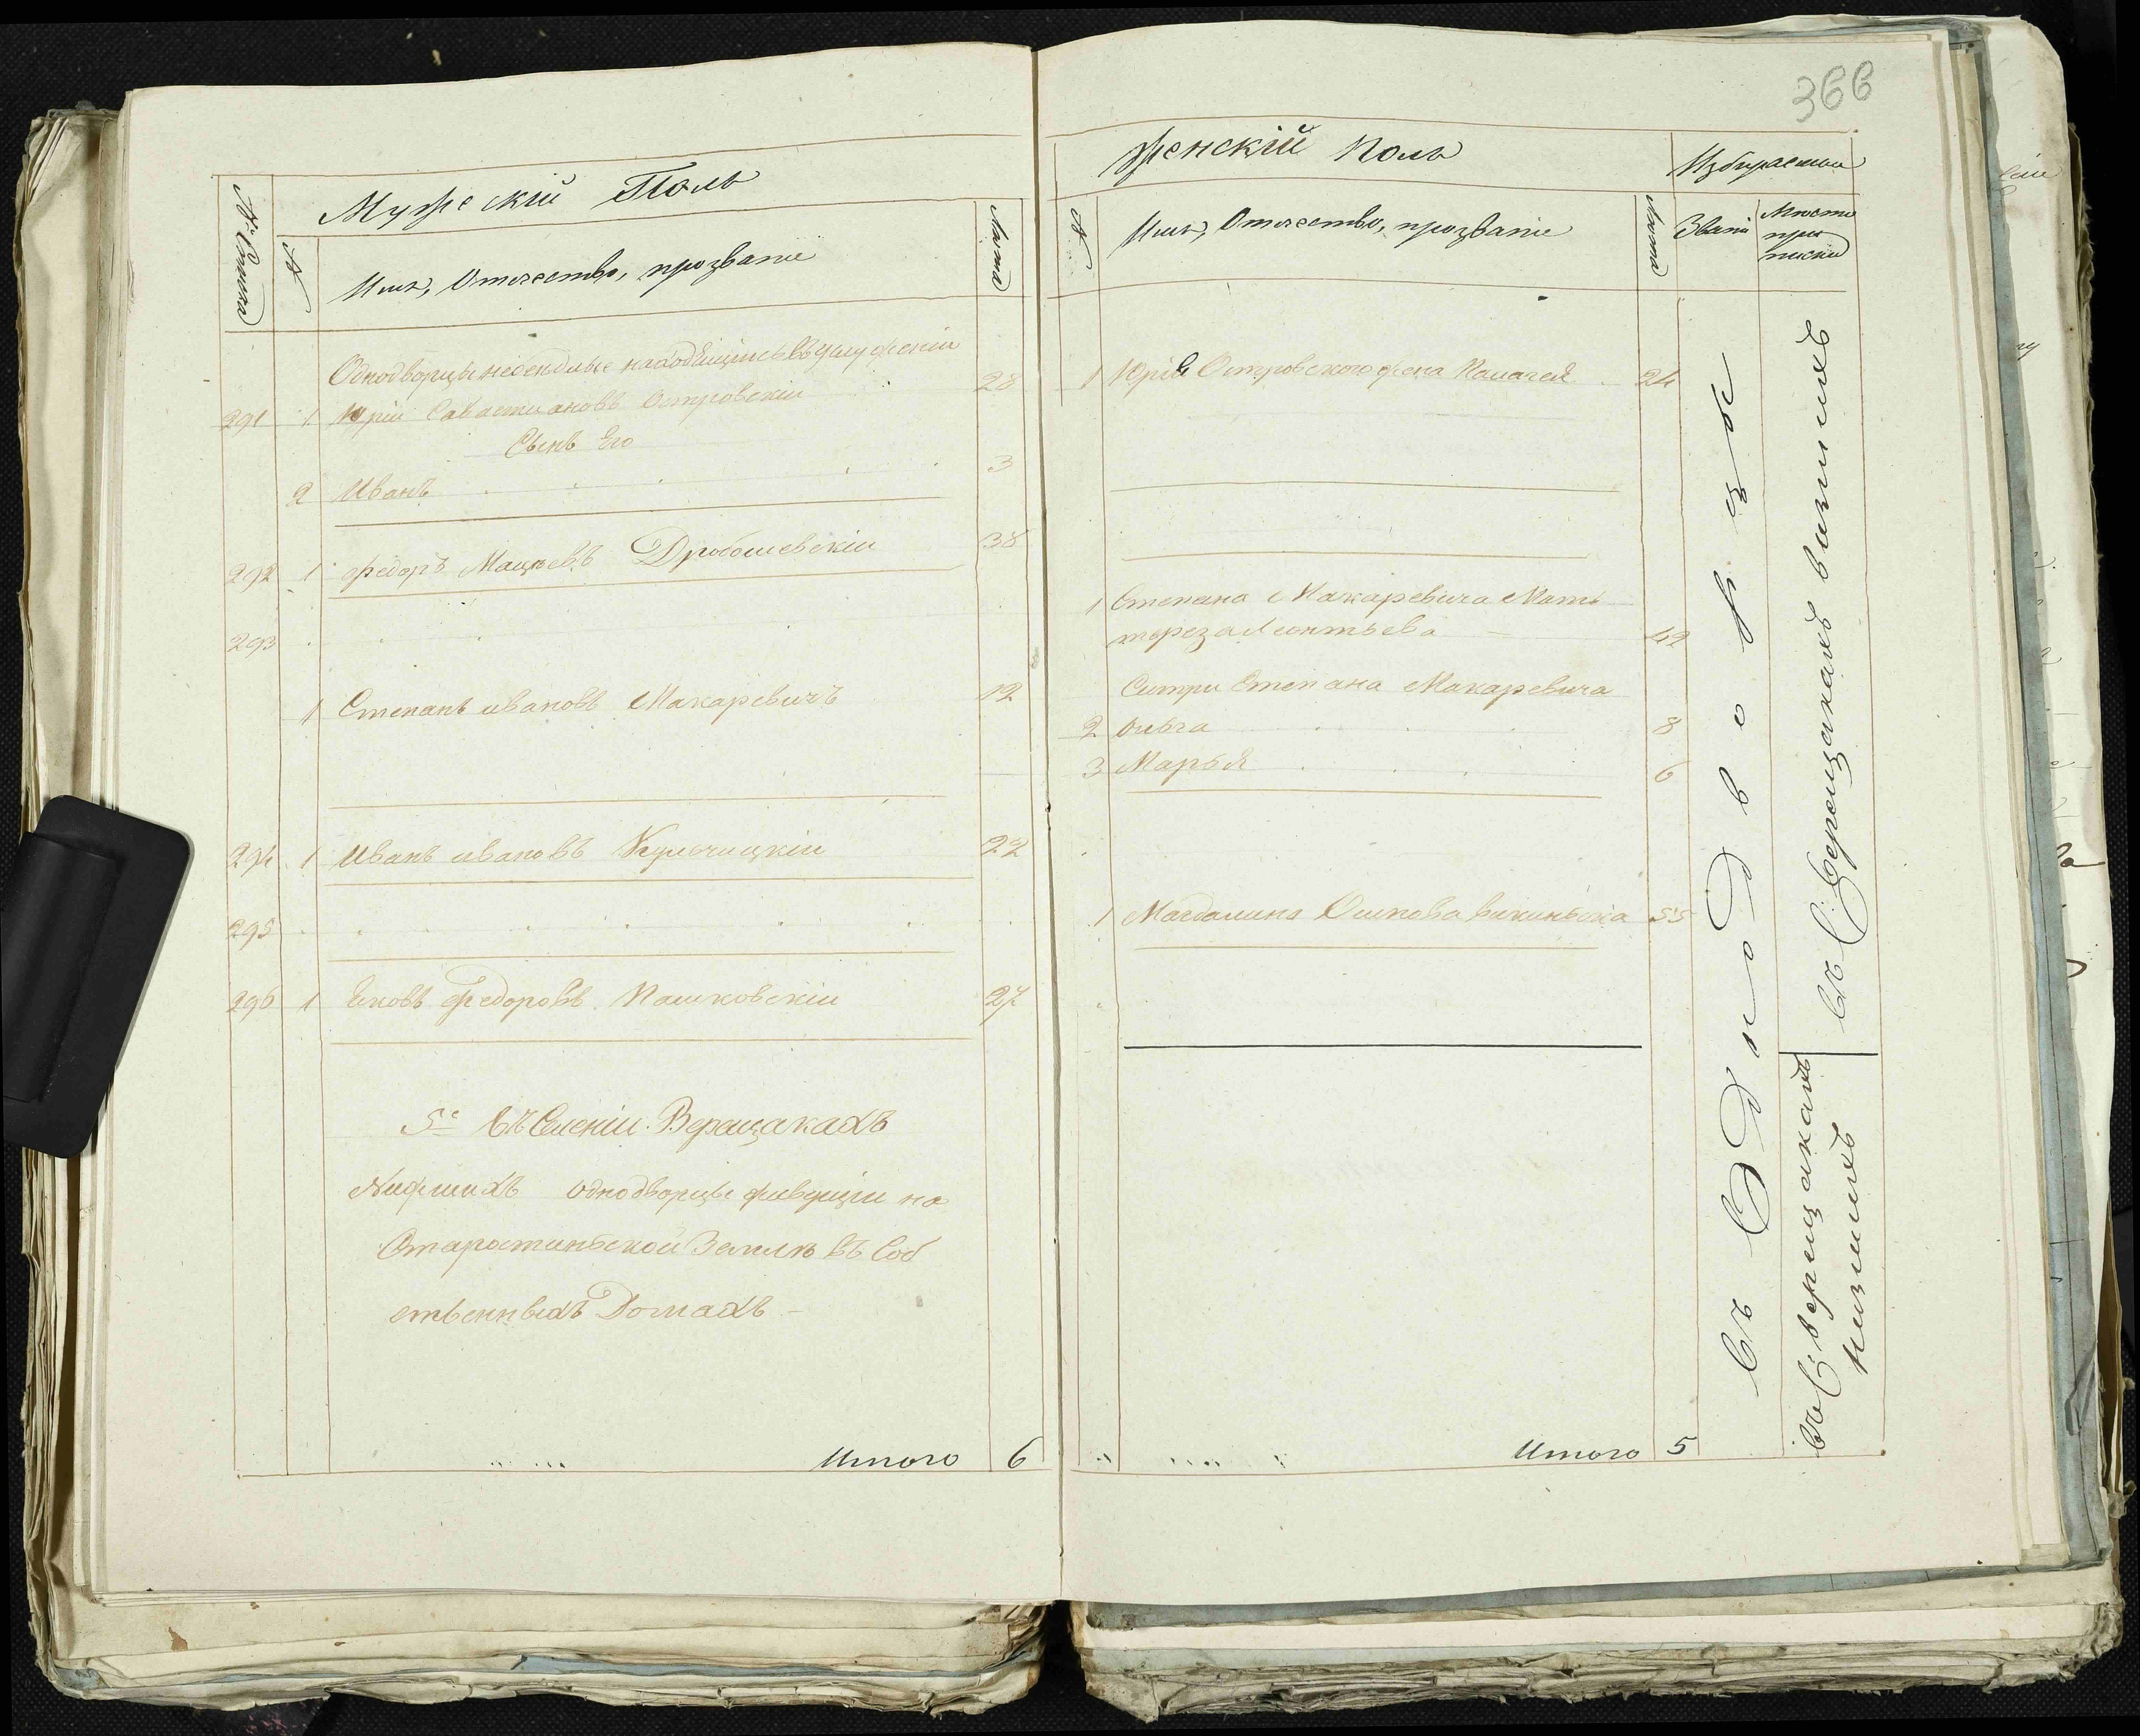 366
Мужескій Полъ
№ Списка
№
Имя, Отечество, прозваніе
Лѣта
Однодворцы неоседлые находящіись въ услуженіи
291 1 Юрій Савастіановъ Островскій 28
Сынъ Его
2 Иванъ 3
292 1 Федоръ Мацѣевъ Дробошевскій 38
293
1 Степанъ ивановъ Макаревичъ 12
294 1 Иванъ ивановъ Кульчицкій 22
295
296 1 Яковъ Федоровъ Пашковскій 27
5е въ Селеніи Верещакахъ
Нижнихъ однодворцы живущіи на
Старостинской Землѣ въ Соб
ственныхъ Домахъ
Итого 6
Женскій Полъ
Избираемыи
№
Имя, Отечество, прозваніе
Лѣта
Званіи
Мѣсто
при
писки
1 Юрія Островского жена Палагея 24
1 Степана Макаревича Мать
тереза Леонтьева 42
Систри Степана Макаревича
2 Ольга 8
3 Марья 6
1 Магдалина Осипова 55
Итого 5
въ Однодворцы
въ С: Верещакахъ вишнихъ
въ С: верищакахъ
нижнихъ